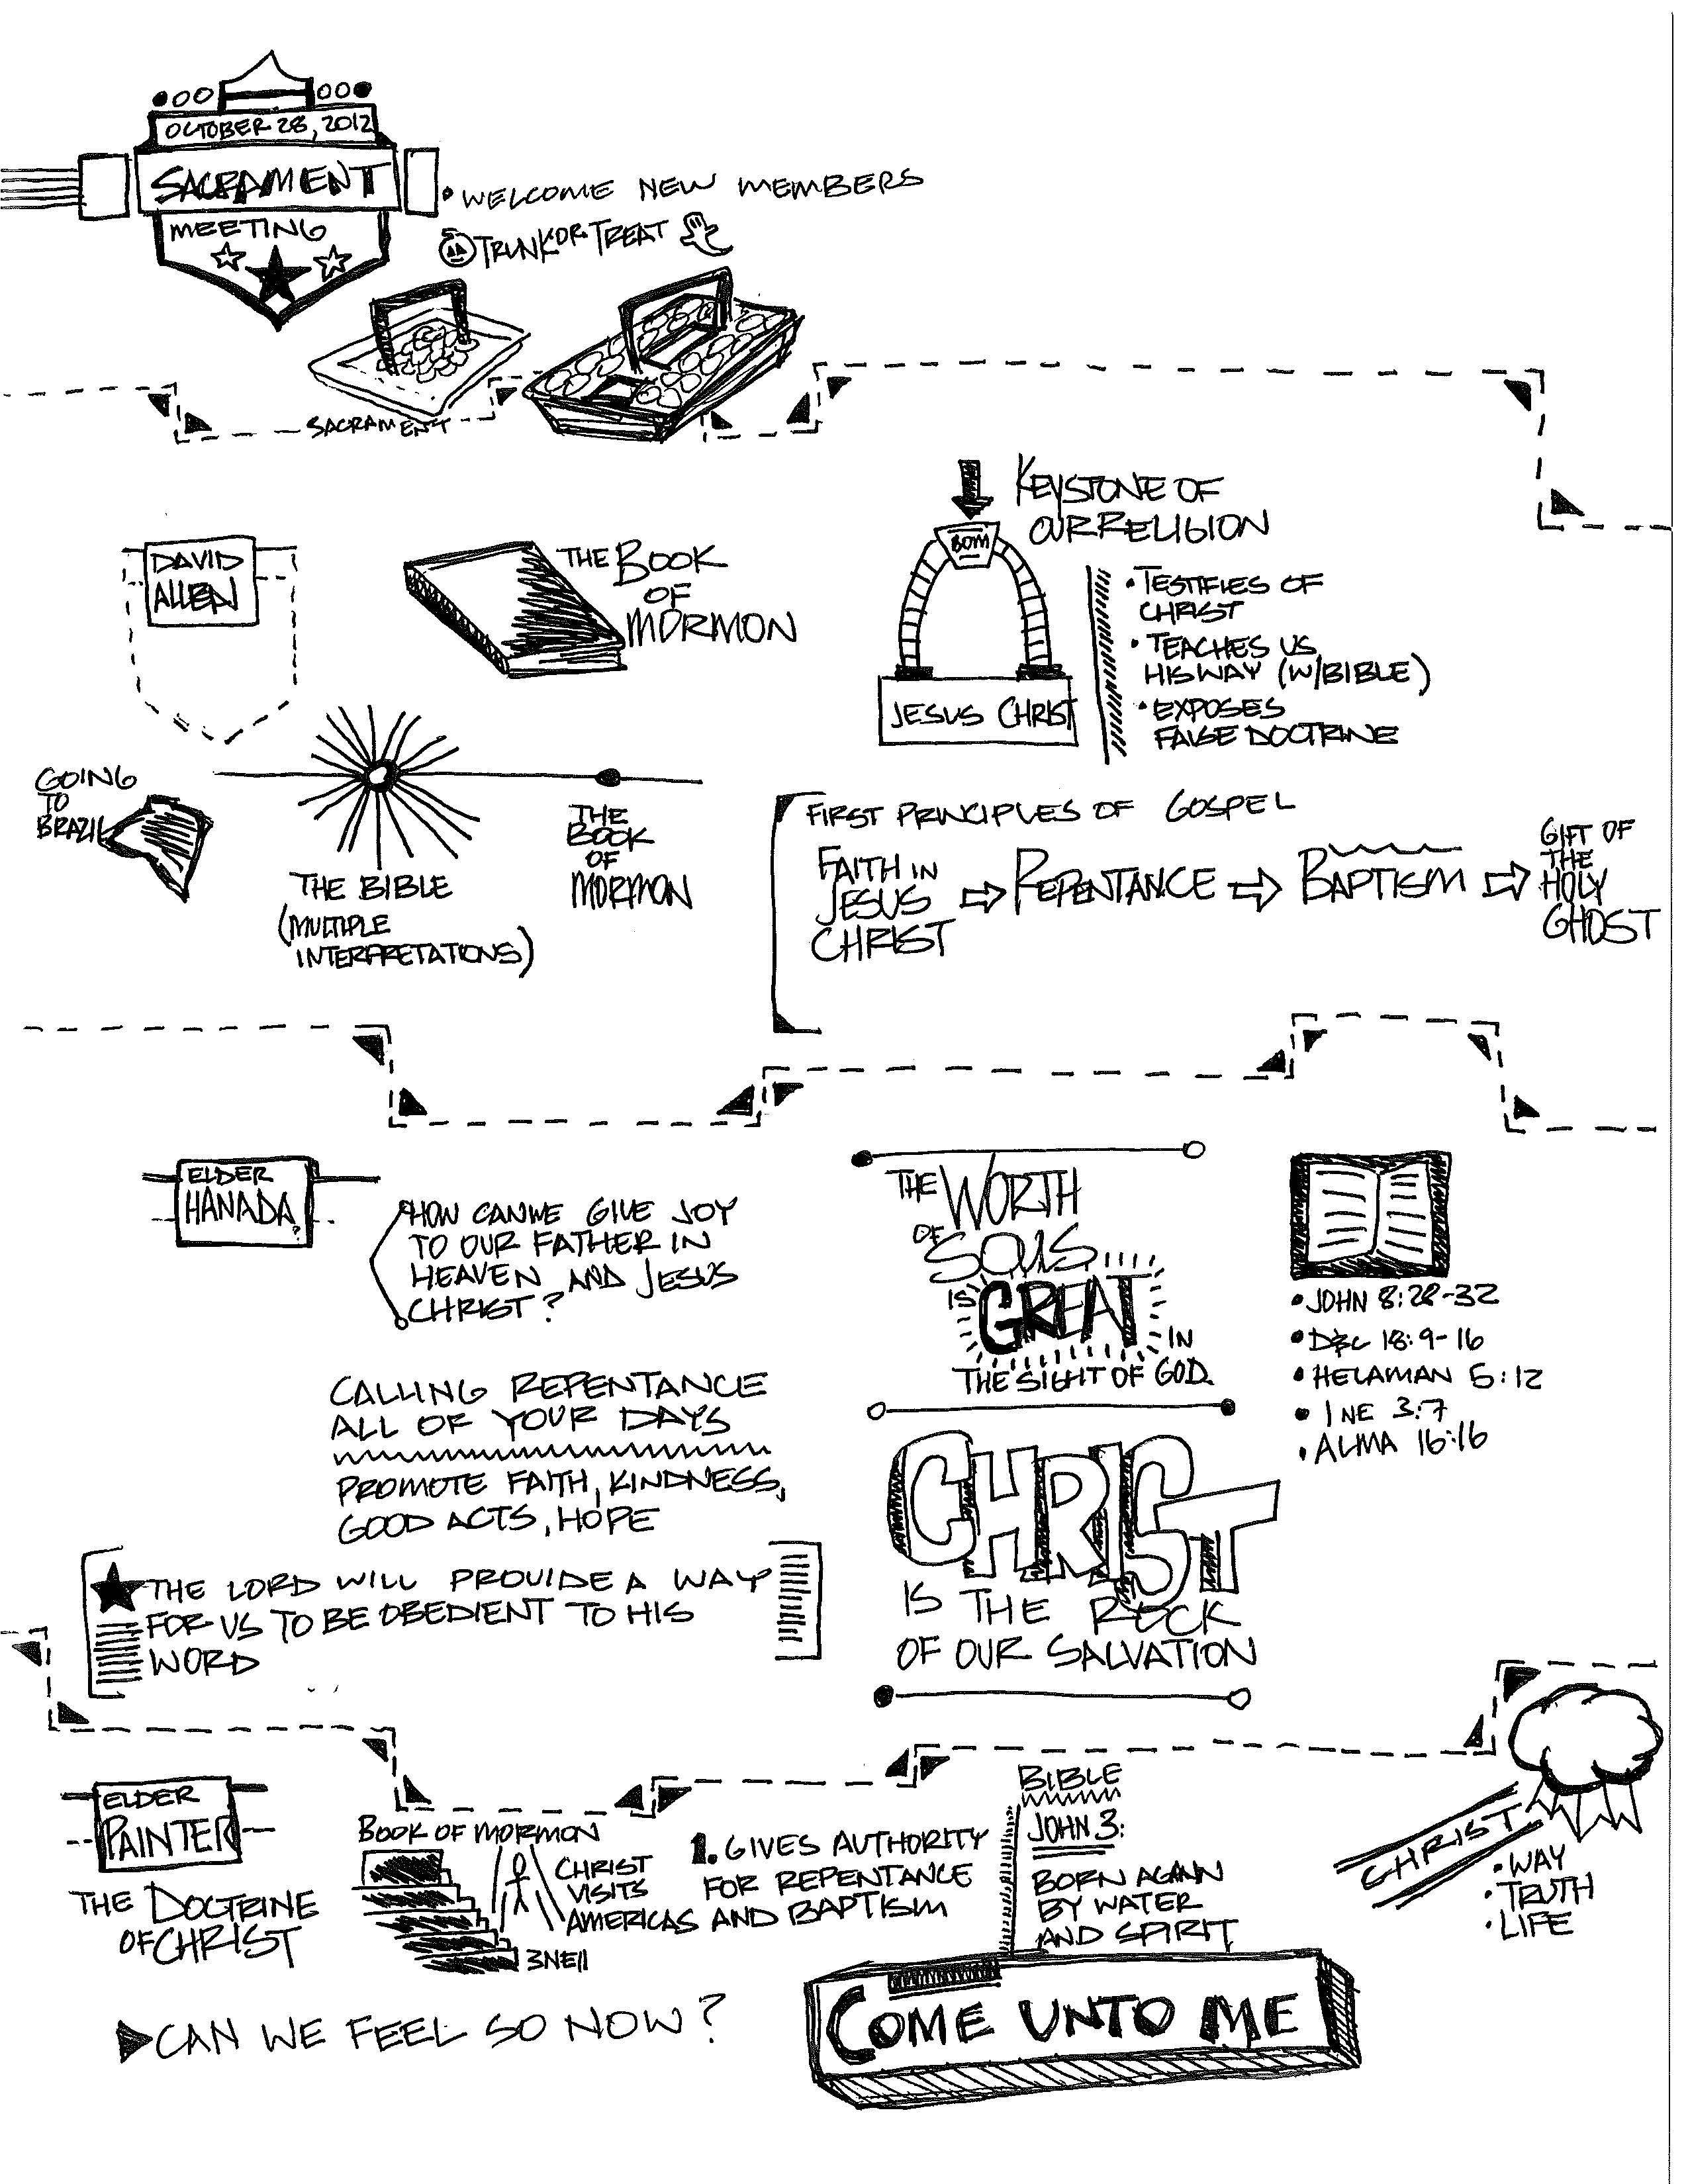 OCTOBER 28, 2012
SACRAMENT
MEETING
• WELCOME NEW MEMBERS
TRUNK OR TREAT
SACRAMENT
DAVID
ALLEN
THE BOOK
OF
MORMON
GOING
TO
BRAZIL
THE BIBLE
(MULTIPLE
INTERPRETATIONS)
THE
BOOK
OF
MORMON
KEYSTONE OF
OUR RELIGION
BOM
JESUS CHRIST
• TESTIFIES OF
CHRIST
• TEACHES US
HIS WAY (W/BIBLE)
• EXPOSES
FALSE DOCTRINE
FIRST PRINCIPLES OF GOSPEL
FAITH IN
JESUS
CHRIST
REPENTANCE
BAPTISM
GIFT OF
THE
HOLY
GHOST
ELDER
HANADA?
HOW CAN WE GIVE JOY
TO OUR FATHER IN
HEAVEN AND JESUS
CHRIST?
CALLING REPENTANCE
ALL OF YOUR DAYS
PROMOTE FAITH, KINDNESS,
GOOD ACTS, HOPE
THE LORD WILL PROVIDE A WAY
FOR US TO BE OBEDIENT TO HIS
WORD
THE WORTH
OF SOULS....
IS GREAT
IN
THE SIGHT OF GOD.
CHRIST
IS THE ROCK
OF OUR SALVATION
• JOHN 8:28-32
• D&C 18:9-16
• HELAMAN 5:12
• 1 NE 3:7
• ALMA 16:16
ELDER
PAINTER
THE DOCTRINE
OF CHRIST
BOOK OF MORMON
CHRIST
VISITS
AMERICAS
3NE11
1. GIVES AUTHORITY
FOR REPENTANCE
AND BAPTISM
BIBLE
JOHN 3:
BORN AGAIN
BY WATER
AND SPIRIT
CHRIST
• WAY
• TRUTH
• LIFE
CAN WE FEEL SO NOW?
COME UNTO ME